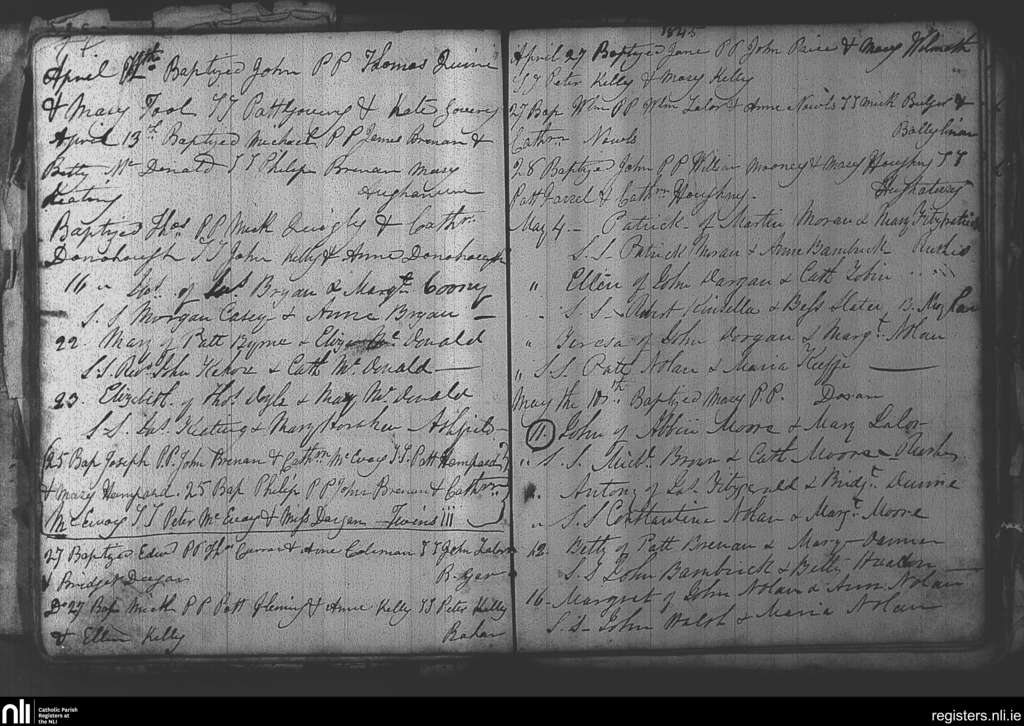 April 12th Baptized John P P Thomas Quinn
& Mary Tool SS Patt & Kate
April 13th Baptized Michael P P James Brenan &
Betty Mc Donald SS Philip Brenan Mary
Keating
Baptized Thos P P Mick Quigly & Cathn
Donohough SS John Kelly & Anne Donohough
16 " Jas. of Jas Bryan & Margt Coony
S. S. Morgan Casey & Anne Bryan —
22 Mary of Patt Byrne & Eliza Mc Donald
S.S. Revd John Kehoe & Cath Mc Donald —
23. Elizabeth of Thos Doyle & Mary Mc Donald
S.S. Jas. Keating & Mary Ashfield
25 Bap Joseph P.P. John Brenan & Cathrn McEvoy SS. Patt Hampard
& Mary Hampard. 25 Bap Philip P P John Brenan & Cathrn
McEvoy SS Peter McEvoy & Miss Dargan Twins!!!
27 Baptized Edwd P P Thos Curran & Anne Coleman SS John Lalor
& Bridget Deegan
Do 27 Bap Mick P P Patt Fleming & Anne Kelly SS Peter Kelly
& Ellen Kelly Rahan
1845
April 27 Baptized Jane P P John Paice & Mary
SS Peter Kelly & Mary Kelly
27 Bap Wm P P Wm Lalor & Anne Newls SS Mick Bulger &
Cathrn Newls Ballylinan
28 Baptized John P P William Mooney & Mary Houghny SS
Patt Farrel & Cathrn Houghny.
May 4 — Patrick of Martin Moran & Mary Fitzpatrick
S.S. Patrick Moran & Anne Bambrick
" Ellen of John Dargan & Cath John
" S.S. Robert Kinsella & Bess Slater
" Teresa of John Dorgan & Margt. Nolan
" S.S. Patt Nolan & Maria Keeffe —
May the 10th Baptized Mary P.P. Doran
11. John of Abbin Moore & Mary Lalor
" S. S. Michl. Brown & Cath Moore
" Antony of Jas. Fitzgerald & Bridgt. Dunne
" S.S Constantine Nolan & Margt. Moore
12. Betty of Patt Brenan & Mary
S.S John Bambrick & Betty
16 - Margret of John Nolan & Ann Nolan
S.S - John Walsh & Maria Nolan
nli
Catholic Parish
Registers at
the NLI
registers.nli.ie